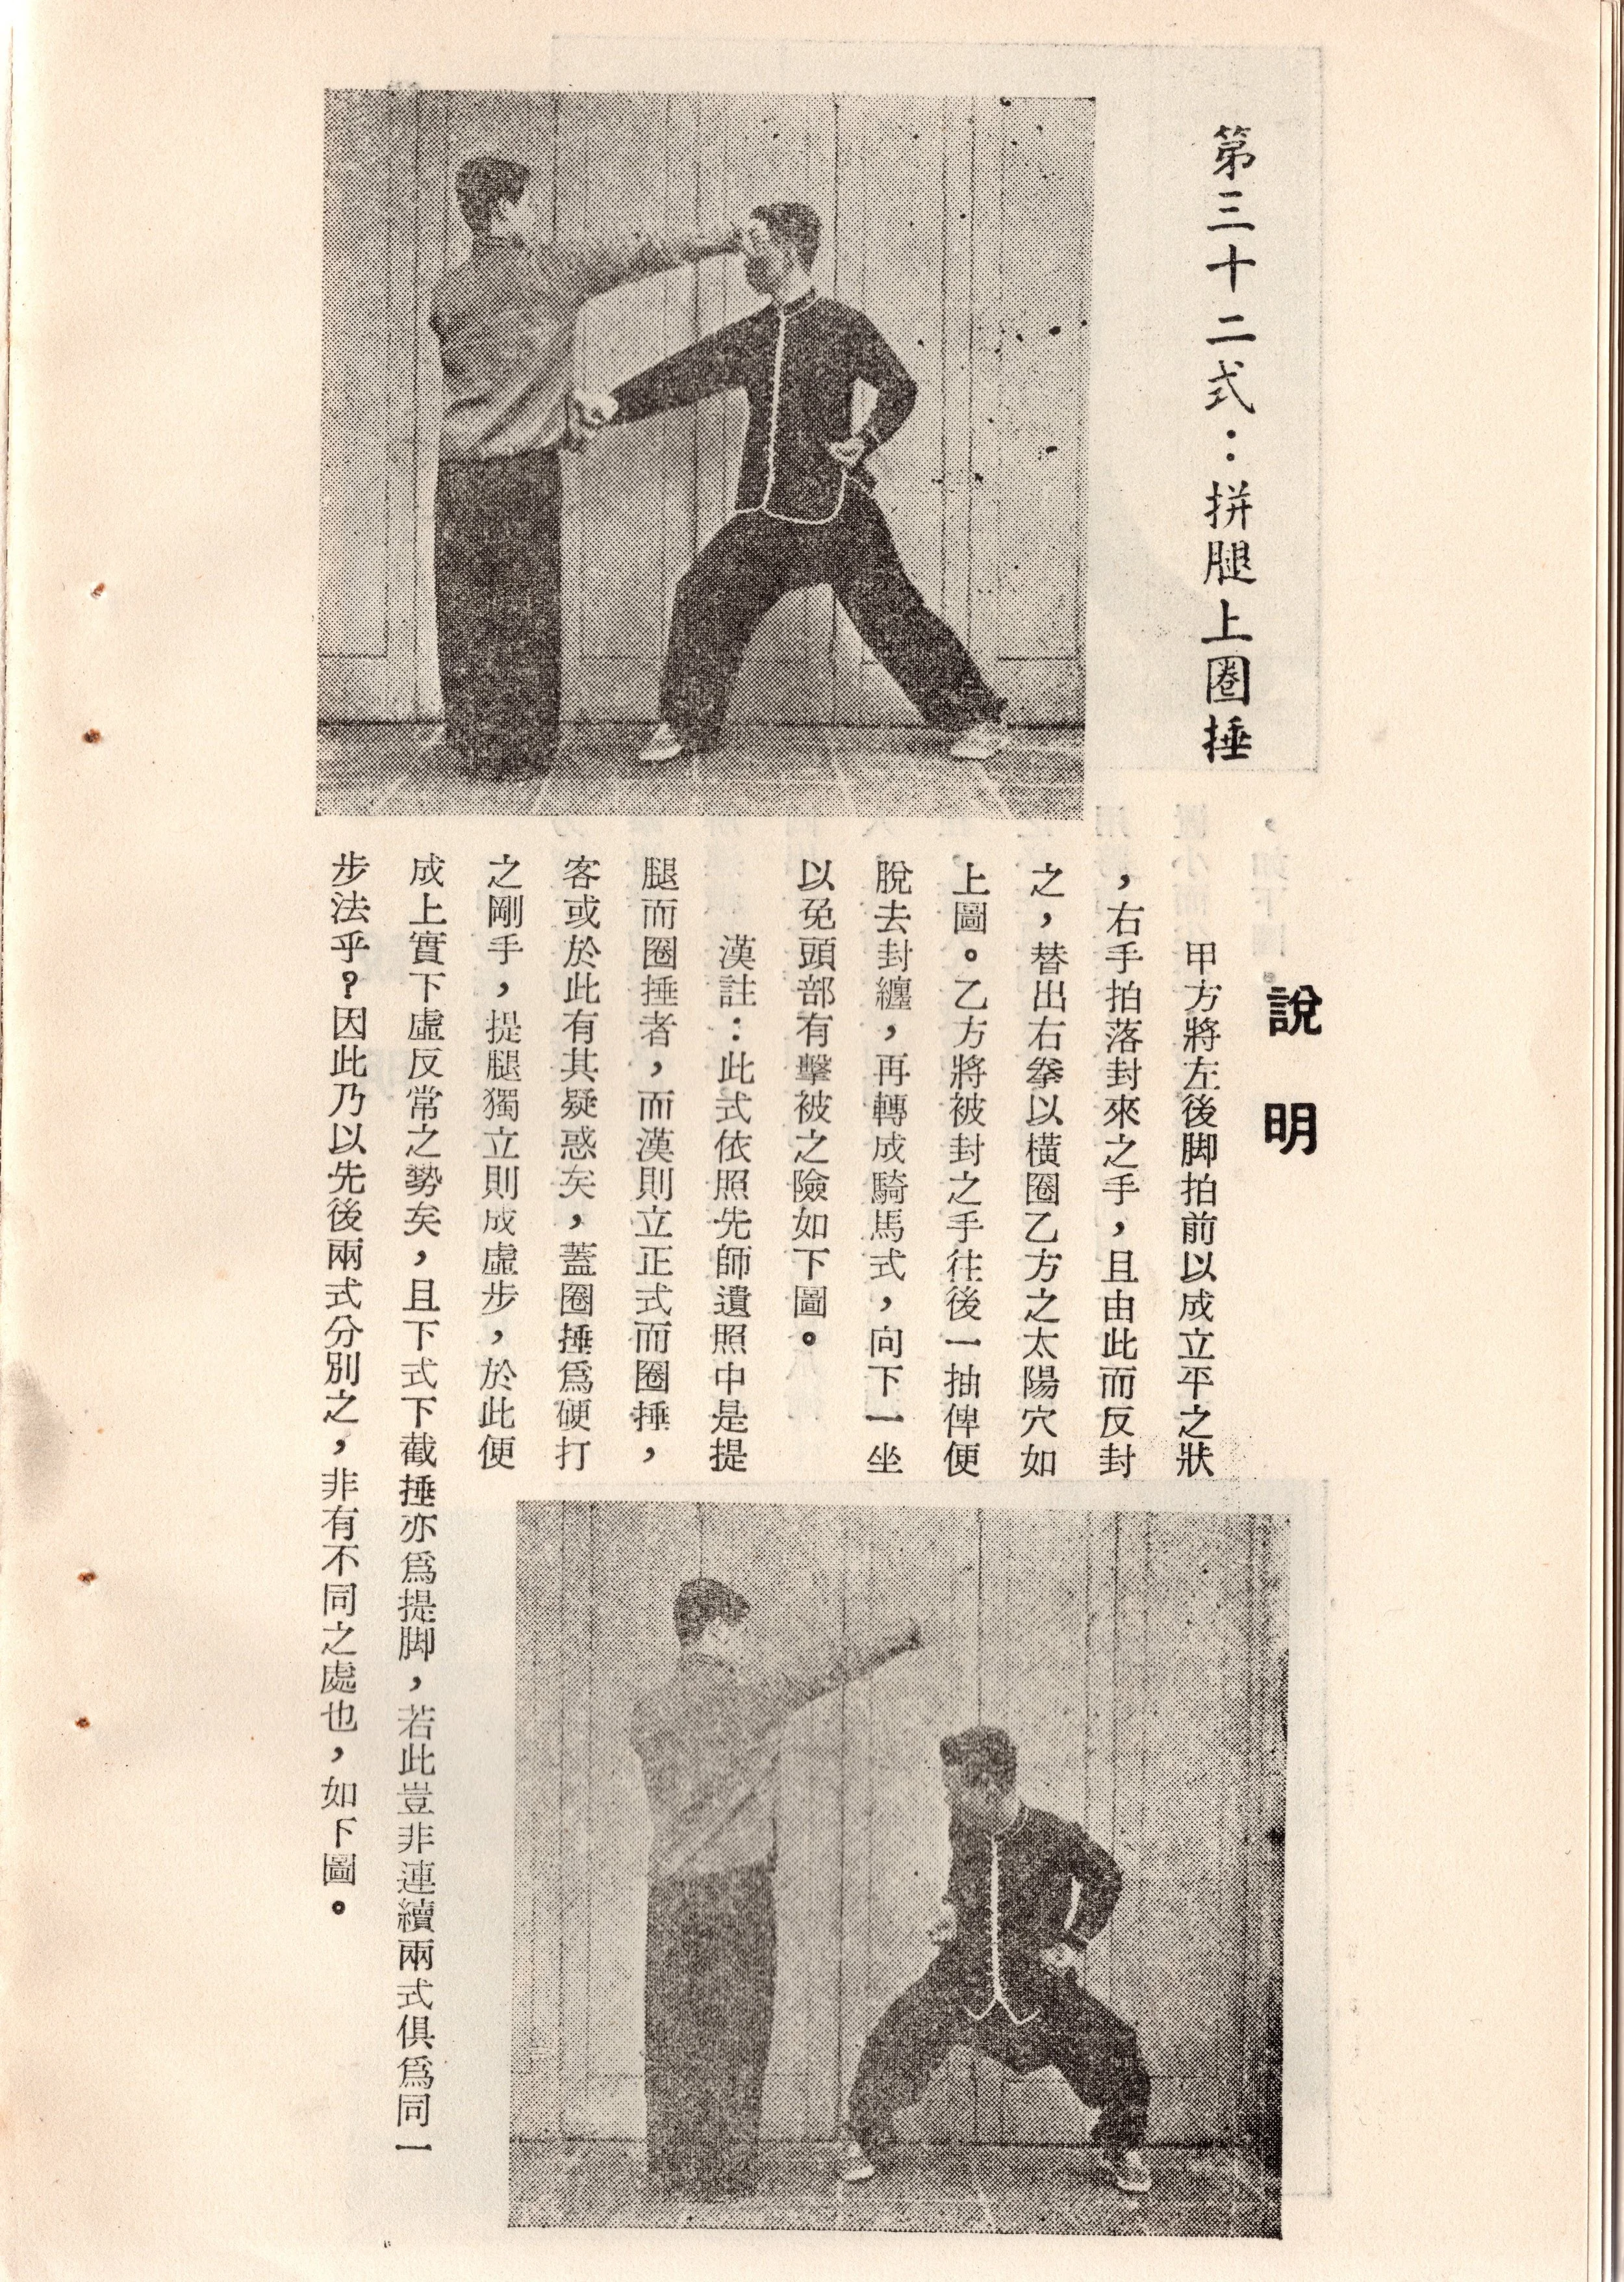 第三十二式：拼腿上圈捶
說明
甲方將左後脚拍前以成立平之狀
，右手拍落封來之手，且由此而反封
之，替出右拳以橫圈乙方之太陽穴如
上圖。乙方將被封之手往後一抽俾便
脫去封纏，再轉成騎馬式，向下一坐
以免頭部有擊被之險如下圖。
漢註：此式依照先師遺照中是提
腿而圈捶者，而漢則立正式而圈捶，
客或於此有其疑惑矣，蓋圈捶爲硬打
之剛手，提腿獨立則成虛步，於此便
成上實下虛反常之勢矣，且下式下截捶亦爲提脚，若此豈非連續兩式俱爲同一
步法乎？因此乃以先後兩式分別之，非有不同之處也，如下圖。